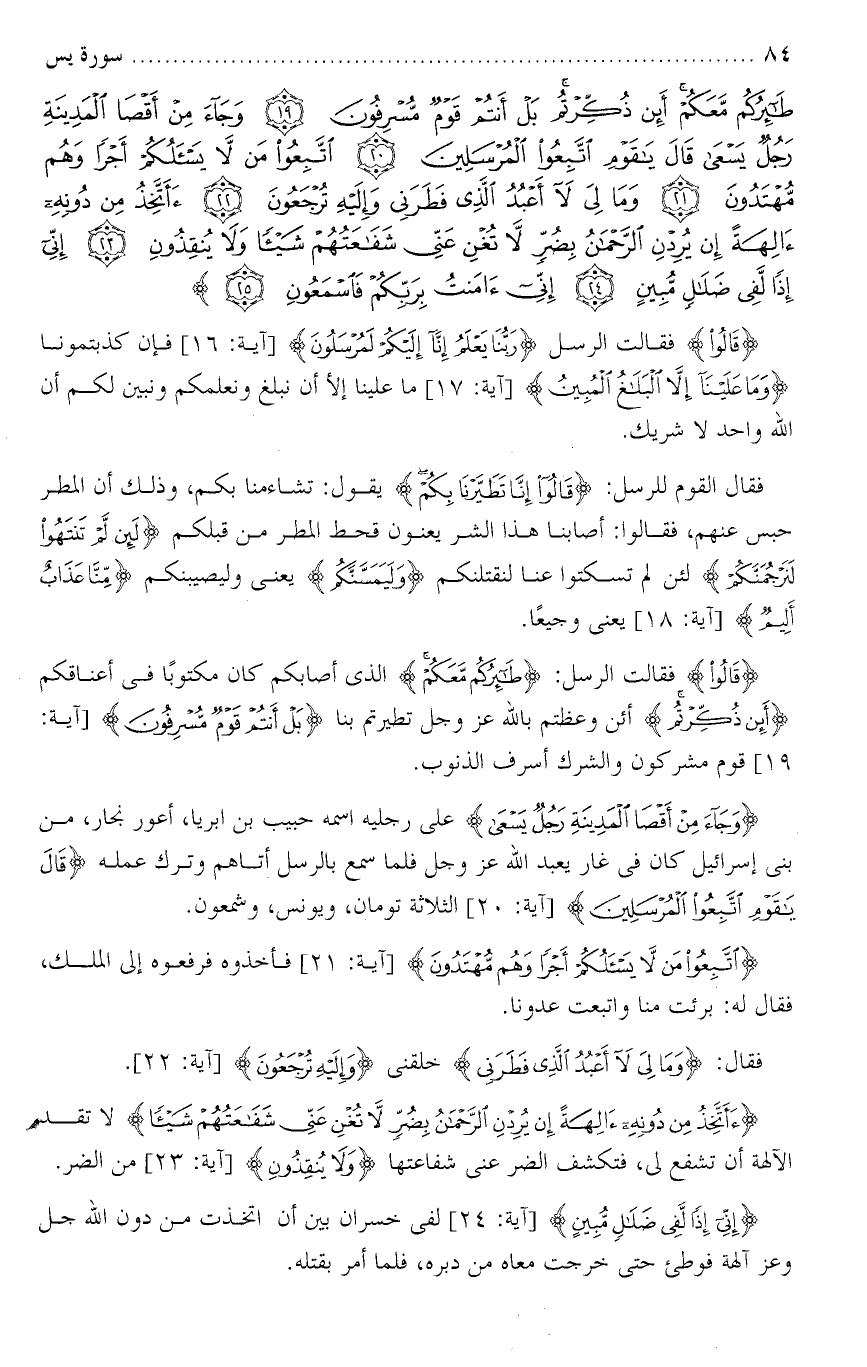 ٨٤ ........................................................................ سورة يس
طَٰٓئِرُكُم مَّعَكُمْ ۚ أَئِن ذُكِّرْتُم ۚ بَلْ أَنتُمْ قَوْمٌ مُّسْرِفُونَ ١٩ وَجَآءَ مِنْ أَقْصَا ٱلْمَدِينَةِ
رَجُلٌ يَسْعَىٰ قَالَ يَٰقَوْمِ ٱتَّبِعُوا۟ ٱلْمُرْسَلِينَ ٢٠ ٱتَّبِعُوا۟ مَن لَّا يَسْـَٔلُكُمْ أَجْرًا وَهُم
مُّهْتَدُونَ ٢١ وَمَا لِىَ لَآ أَعْبُدُ ٱلَّذِى فَطَرَنِى وَإِلَيْهِ تُرْجَعُونَ ٢٢ ءَأَتَّخِذُ مِن دُونِهِۦٓ
ءَالِهَةً إِن يُرِدْنِ ٱلرَّحْمَٰنُ بِضُرٍّ لَّا تُغْنِ عَنِّى شَفَٰعَتُهُمْ شَيْـًٔا وَلَا يُنقِذُونِ ٢٣ إِنِّىٓ
إِذًا لَّفِى ضَلَٰلٍ مُّبِينٍ ٢٤ إِنِّىٓ ءَامَنتُ بِرَبِّكُمْ فَٱسْمَعُونِ ٢٥ ﴾
﴿قَالُوا۟﴾ فقالت الرسل ﴿رَبُّنَا يَعْلَمُ إِنَّآ إِلَيْكُمْ لَمُرْسَلُونَ﴾ [آية: ١٦] فإن كذبتمونا
﴿وَمَا عَلَيْنَآ إِلَّا ٱلْبَلَٰغُ ٱلْمُبِينُ﴾ [آية: ١٧] ما علينا إلأ أن نبلغ ونعلمكم ونبين لكم أن
الله واحد لا شريك.
فقال القوم للرسل: ﴿قَالُوٓا۟ إِنَّا تَطَيَّرْنَا بِكُمْ ۖ﴾ يقول: تشاءمنا بكم، وذلك أن المطر
حبس عنهم، فقالوا: أصابنا هذا الشر يعنون قحط المطر من قبلكم ﴿لَئِن لَّمْ تَنتَهُوا۟
لَنَرْجُمَنَّكُمْ﴾ لئن لم تسكتوا عنا لنقتلنكم ﴿وَلَيَمَسَّنَّكُم﴾ يعنى وليصيبنكم ﴿مِّنَّا عَذَابٌ
أَلِيمٌ﴾ [آية: ١٨] يعنى وجيعًا.
﴿قَالُوا۟﴾ فقالت الرسل: ﴿طَٰٓئِرُكُم مَّعَكُمْ ۚ﴾ الذى أصابكم كان مكتوبًا فى أعناقكم
﴿أَئِن ذُكِّرْتُم ۚ﴾ أئن وعظتم بالله عز وجل تطيرتم بنا ﴿بَلْ أَنتُمْ قَوْمٌ مُّسْرِفُونَ﴾ [آية:
١٩] قوم مشركون والشرك أسرف الذنوب.
﴿وَجَآءَ مِنْ أَقْصَا ٱلْمَدِينَةِ رَجُلٌ يَسْعَىٰ﴾ على رجليه اسمه حبيب بن ابريا، أعور نجار، من
بنى إسرائيل كان فى غار يعبد الله عز وجل فلما سمع بالرسل أتاهم وترك عمله ﴿قَالَ
يَٰقَوْمِ ٱتَّبِعُوا۟ ٱلْمُرْسَلِينَ﴾ [آية: ٢٠] الثلاثة تومان، ويونس، وشمعون.
﴿ٱتَّبِعُوا۟ مَن لَّا يَسْـَٔلُكُمْ أَجْرًا وَهُم مُّهْتَدُونَ﴾ [آية: ٢١] فأخذوه فرفعوه إلى الملك،
فقال له: برئت منا واتبعت عدونا.
فقال: ﴿وَمَا لِىَ لَآ أَعْبُدُ ٱلَّذِى فَطَرَنِى﴾ خلقنى ﴿وَإِلَيْهِ تُرْجَعُونَ﴾ [آية: ٢٢].
﴿ءَأَتَّخِذُ مِن دُونِهِۦٓ ءَالِهَةً إِن يُرِدْنِ ٱلرَّحْمَٰنُ بِضُرٍّ لَّا تُغْنِ عَنِّى شَفَٰعَتُهُمْ شَيْـًٔا﴾ لا تقدر
الآلهة أن تشفع لى، فتكشف الضر عنى شفاعتها ﴿وَلَا يُنقِذُونِ﴾ [آية: ٢٣] من الضر.
﴿إِنِّىٓ إِذًا لَّفِى ضَلَٰلٍ مُّبِينٍ﴾ [آية: ٢٤] لفى خسران بين أن اتخذت من دون الله جل
وعز آلهة فوطئ حتى خرجت معاه من دبره، فلما أمر بقتله.